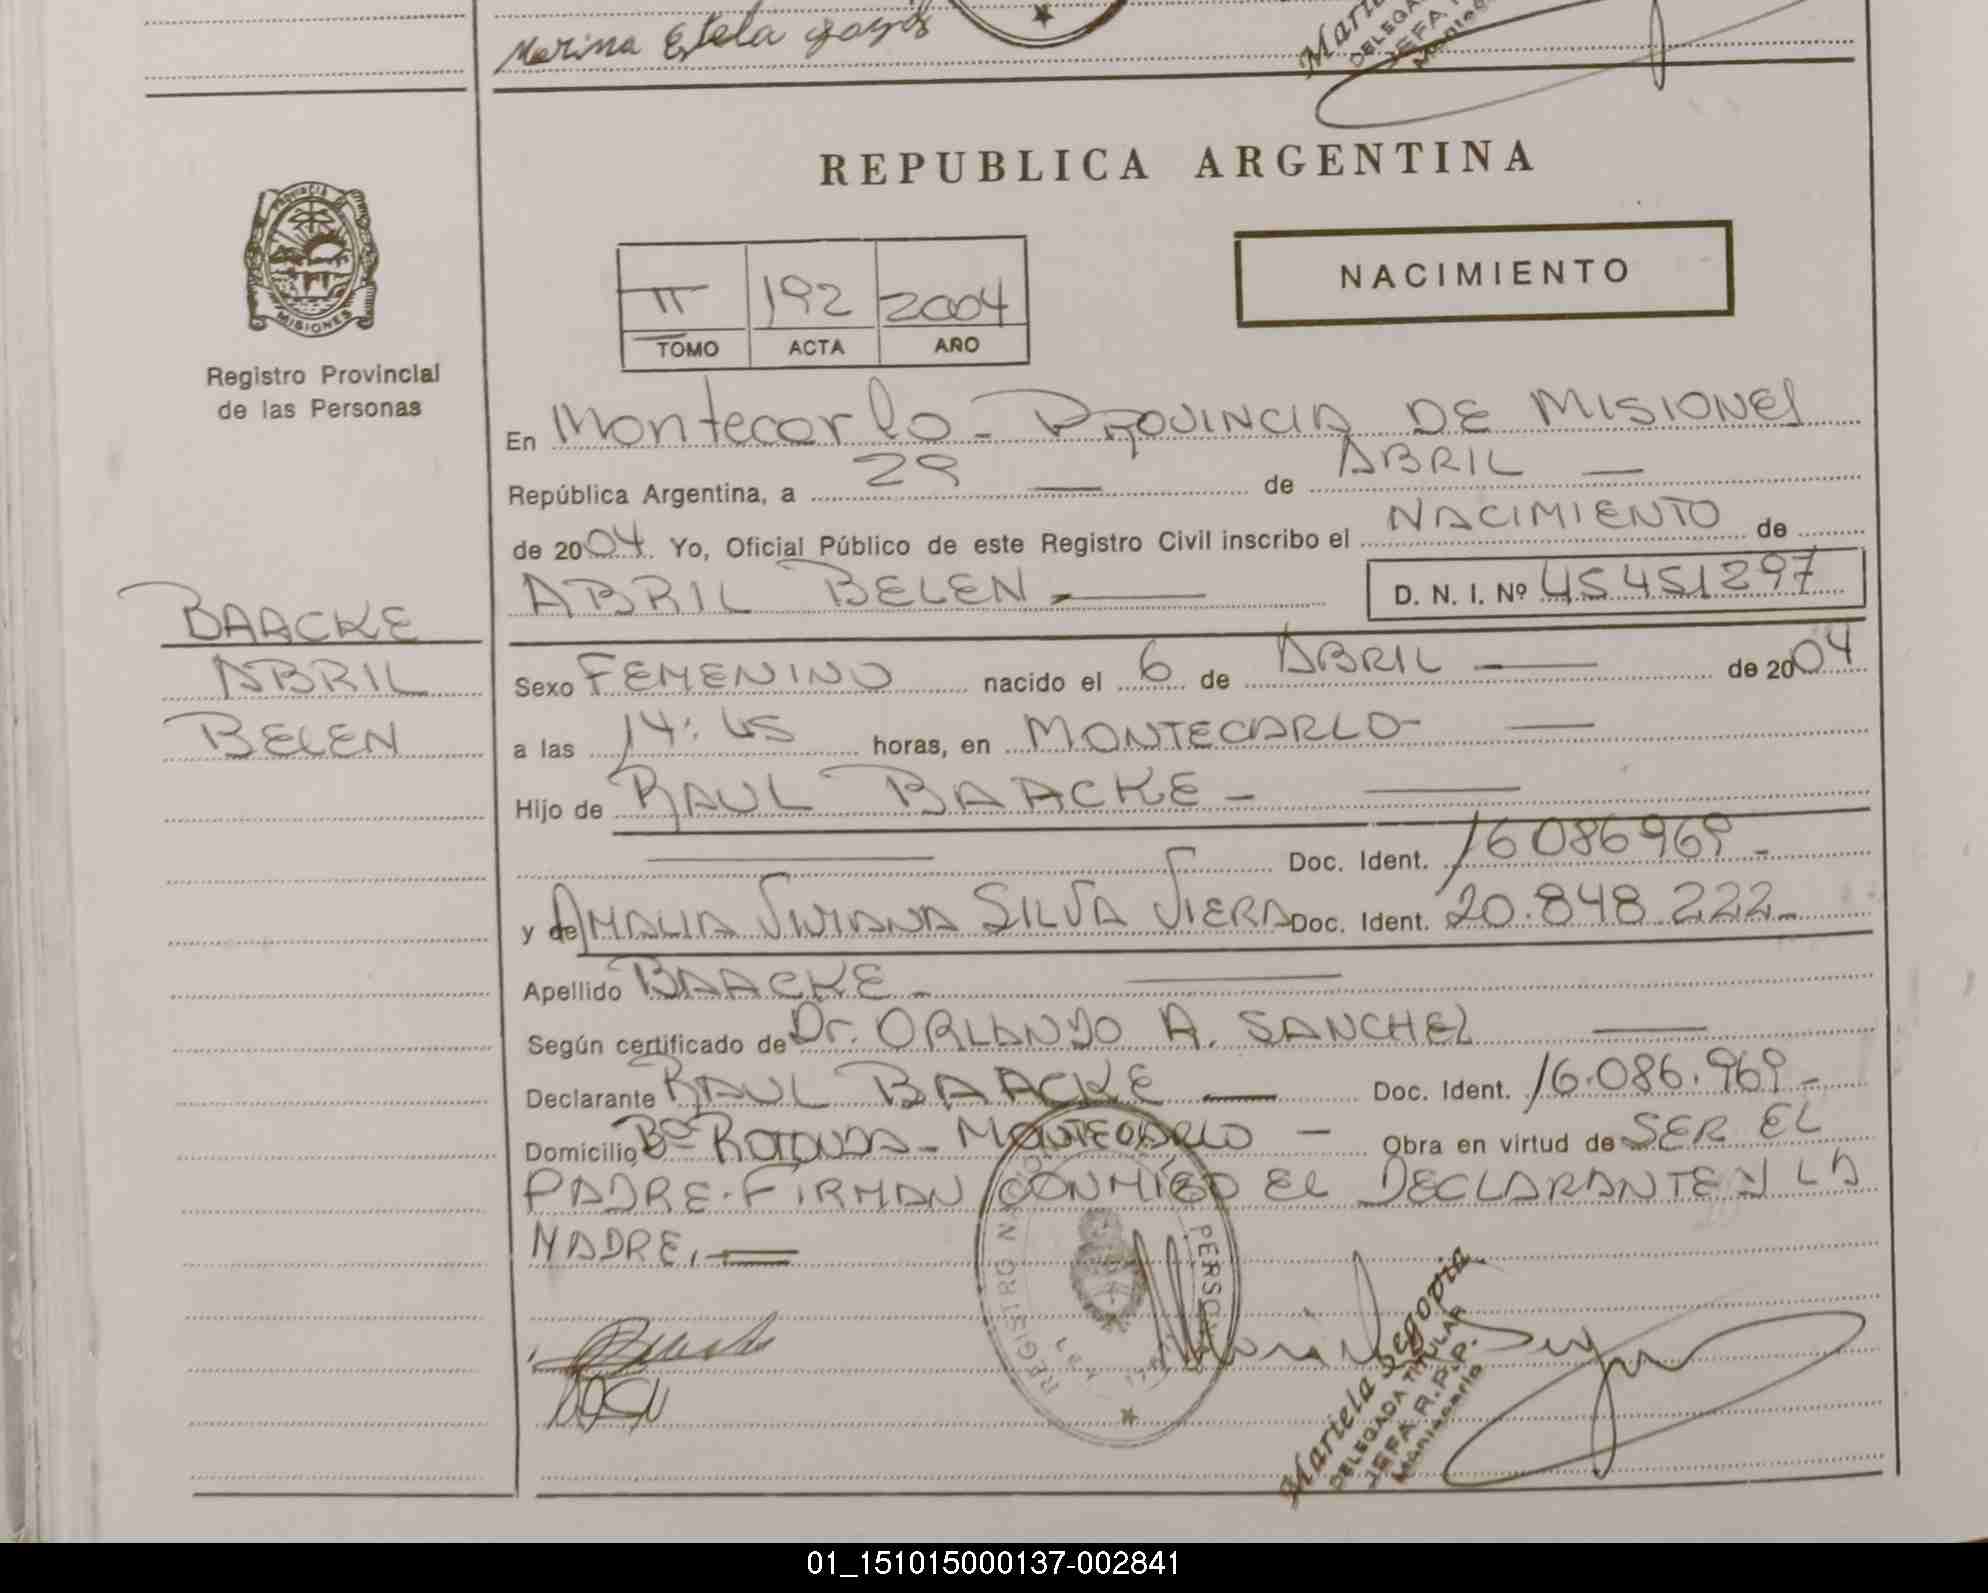 Marina Estela
REPUBLICA ARGENTINA
PROVINCIA
MISIONES
Registro Provincial
de las Personas
NACIMIENTO
II 192 2004
TOMO ACTA AÑO
En Montecarlo - PROVINCIA DE MISIONES
República Argentina, a 29 — de ABRIL —
de 2004 Yo, Oficial Público de este Registro Civil inscribo el NACIMIENTO de
ABRIL BELEN — D. N. I. Nº 45451297
BAACKE
ABRIL
BELEN
Sexo FEMENINO nacido el 6 de ABRIL — de 2004
a las 14:45 horas, en MONTECARLO- —
Hijo de RAUL BAACKE - —
— Doc. Ident. 16086969 -
y de AMALIA VIVIANA SILVA VIERA Doc. Ident. 20.848.222-
Apellido BAACKE - —
Según certificado de Dr. ORLANDO A. SANCHEZ —
Declarante RAUL BAACKE — Doc. Ident. 16.086.969 -
Domicilio Bº ROTONDA - MONTECARLO — Obra en virtud de SER EL
PADRE. FIRMAN CONMIGO EL DECLARANTE Y LA
MADRE. —
REGISTRO NACIONAL PERSO
Mariela Segovia
DELEGADA TITULAR
JEFA R.P.P.
Montecarlo
01_151015000137-002841